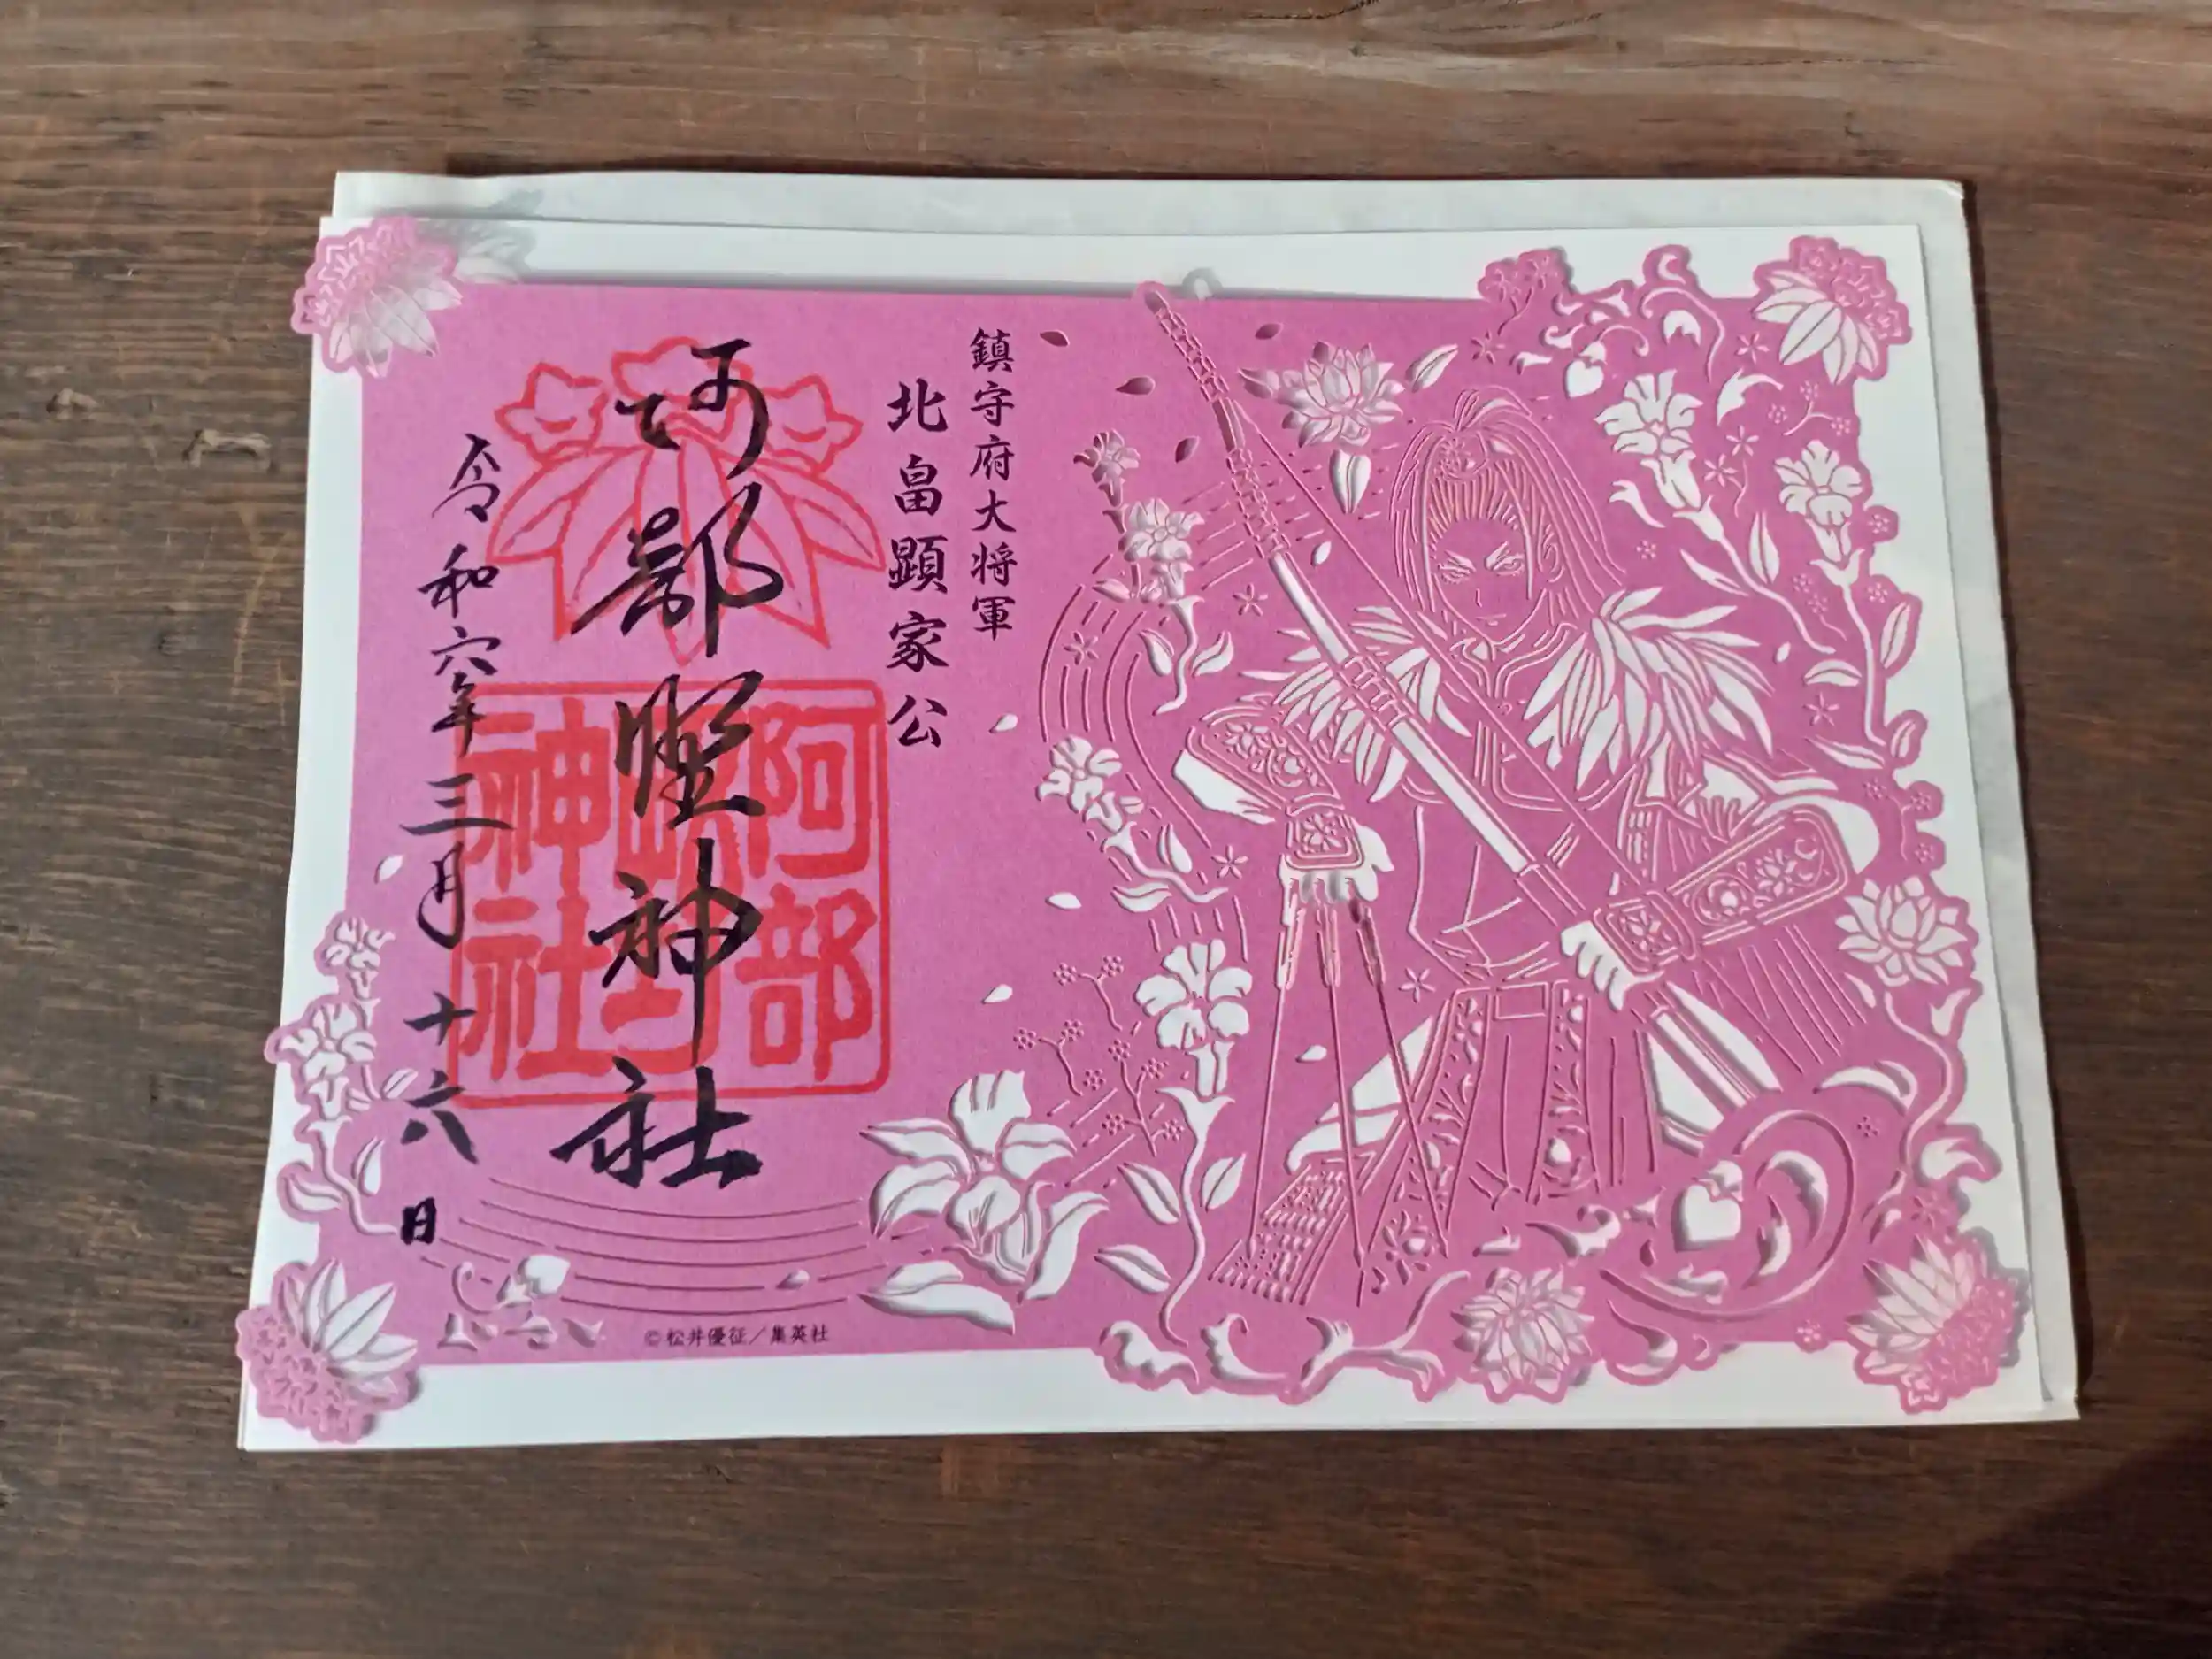 鎮守府大将軍
北畠顕家公
阿部野神社
阿部野神社
令和六年三月十六日
©松井優征／集英社